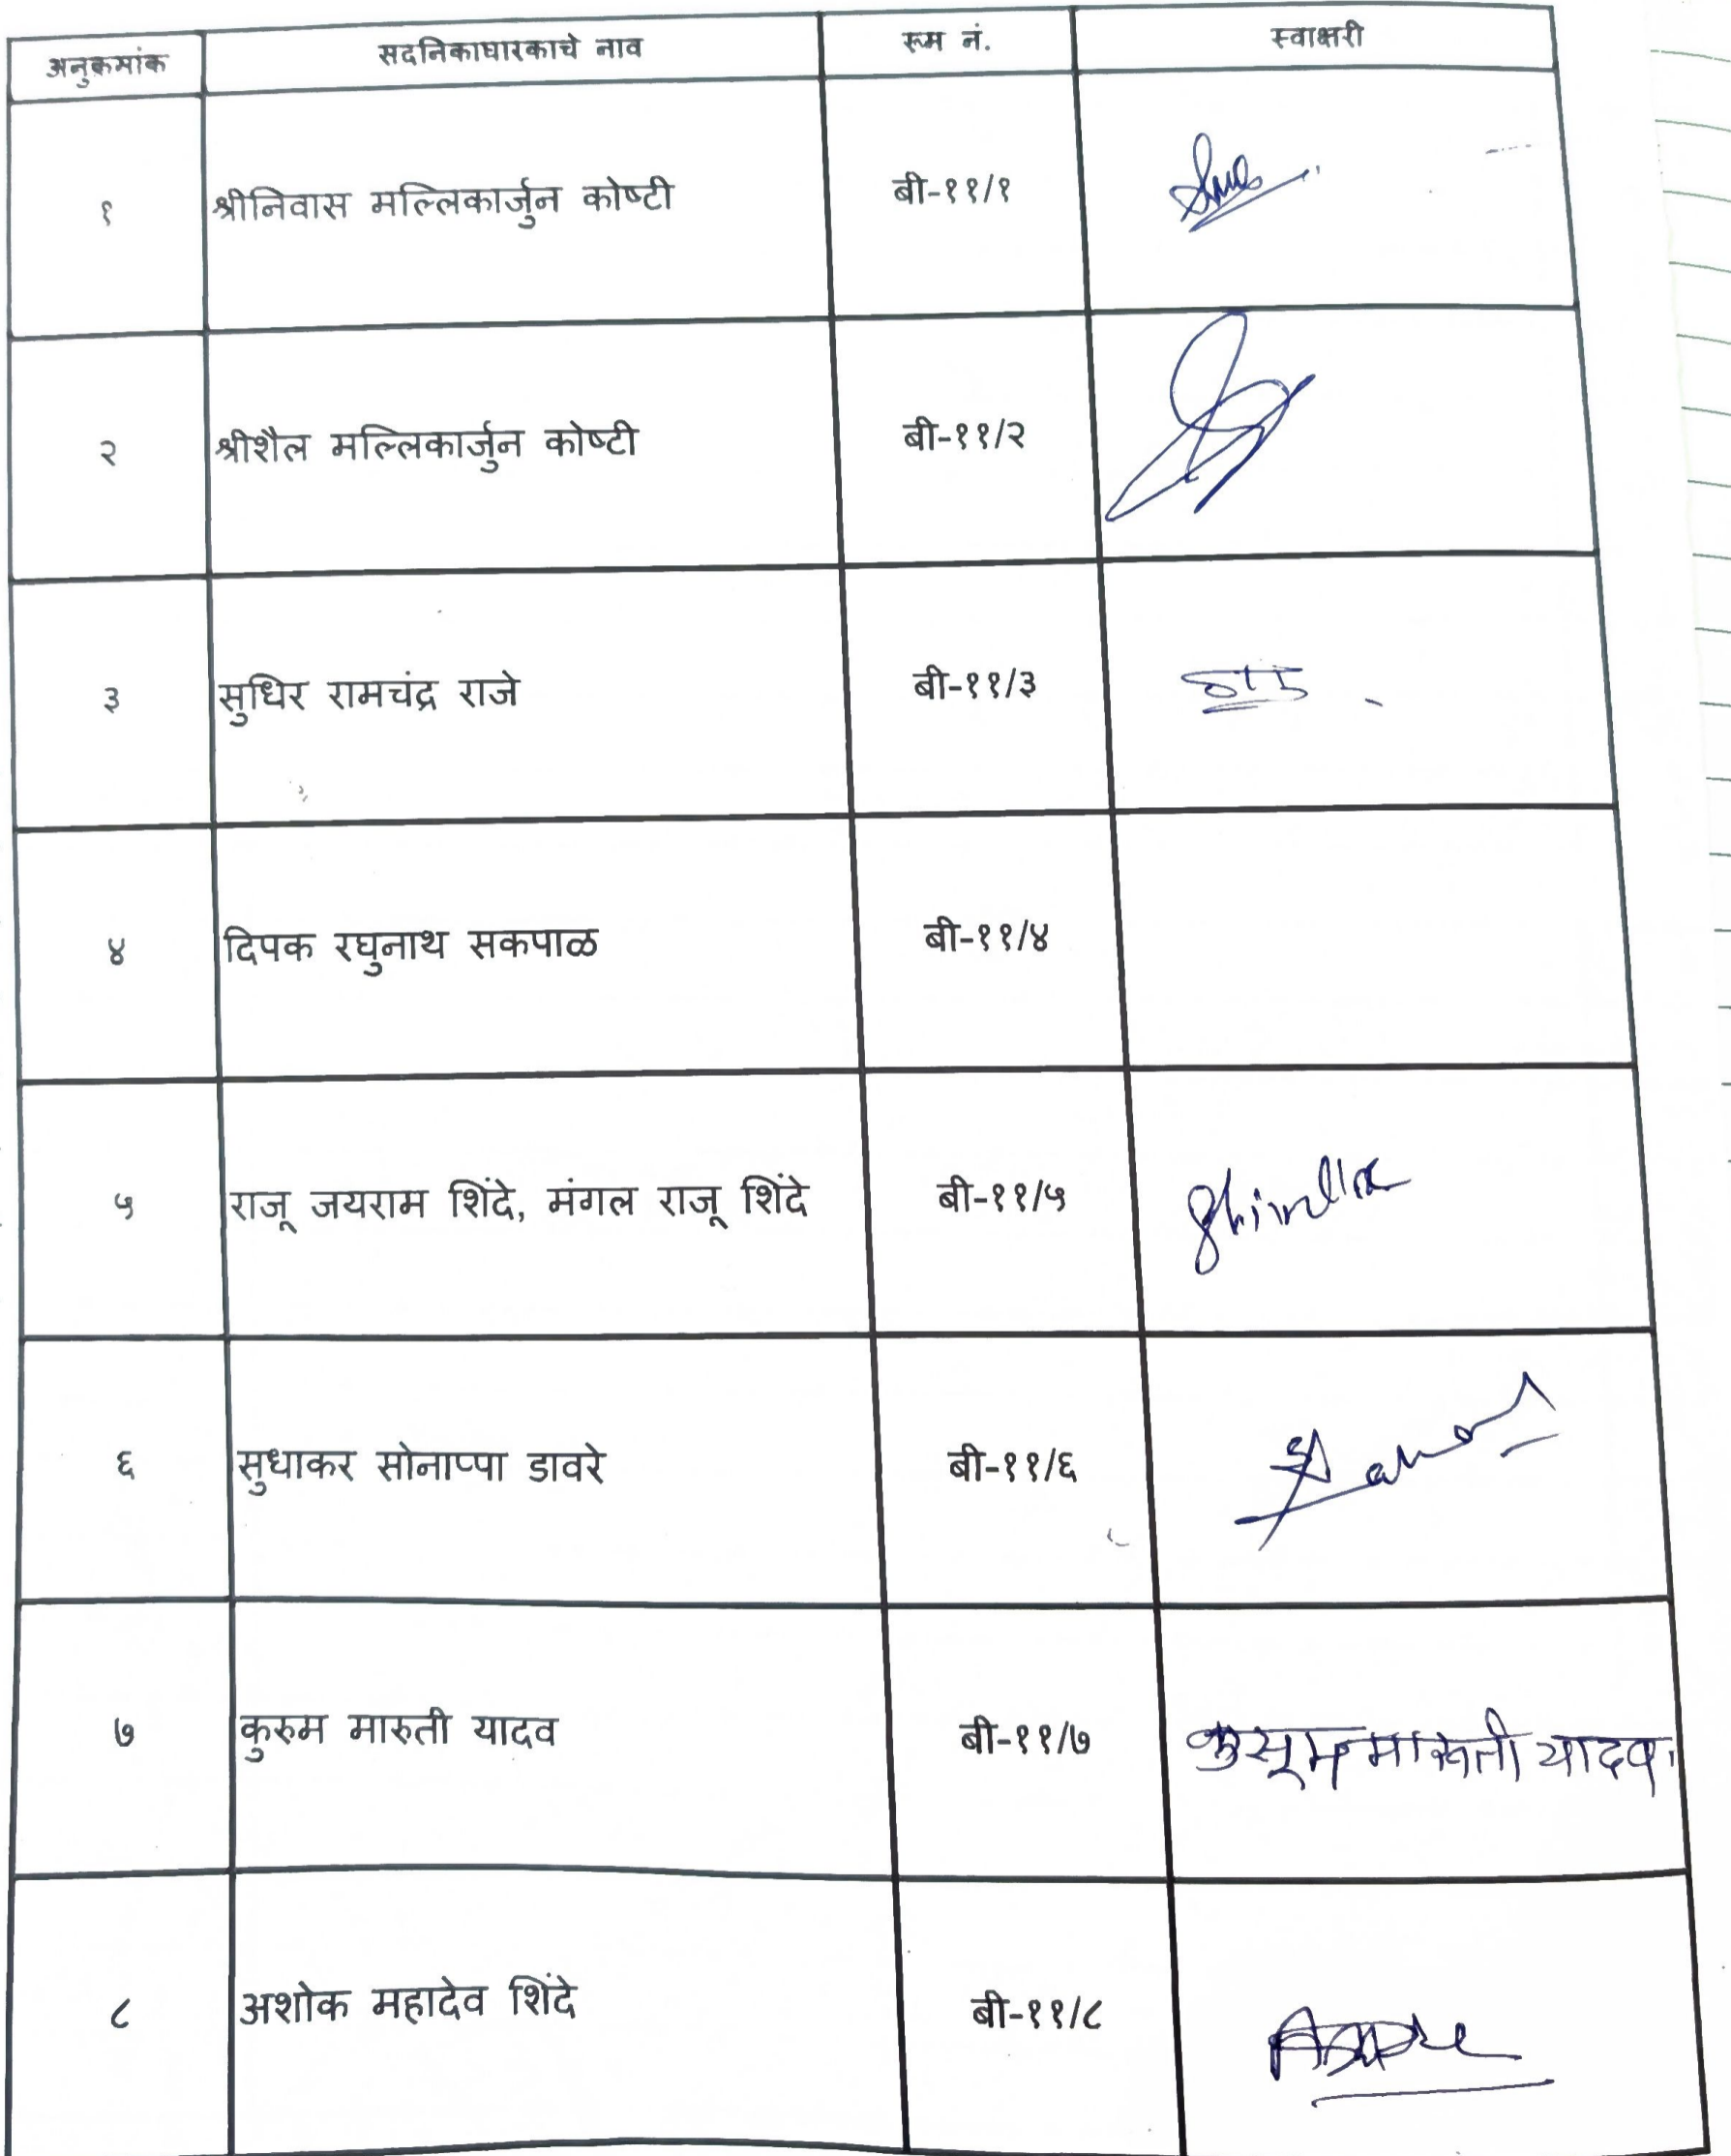 अनुक्रमांक सदनिकाधारकाचे नाव रूम नं. स्वाक्षरी
१ श्रीनिवास मल्लिकार्जुन कोष्टी बी-११/१
२ श्रीशैल मल्लिकार्जुन कोष्टी बी-११/२
३ सुधिर रामचंद्र राजे बी-११/३
४ दिपक रघुनाथ सकपाळ बी-११/४
५ राजू जयराम शिंदे, मंगल राजू शिंदे बी-११/५
६ सुधाकर सोनाप्पा डावरे बी-११/६
७ कुरुम मारुती यादव बी-११/७ कुसूम मारुती यादव
८ अशोक महादेव शिंदे बी-११/८